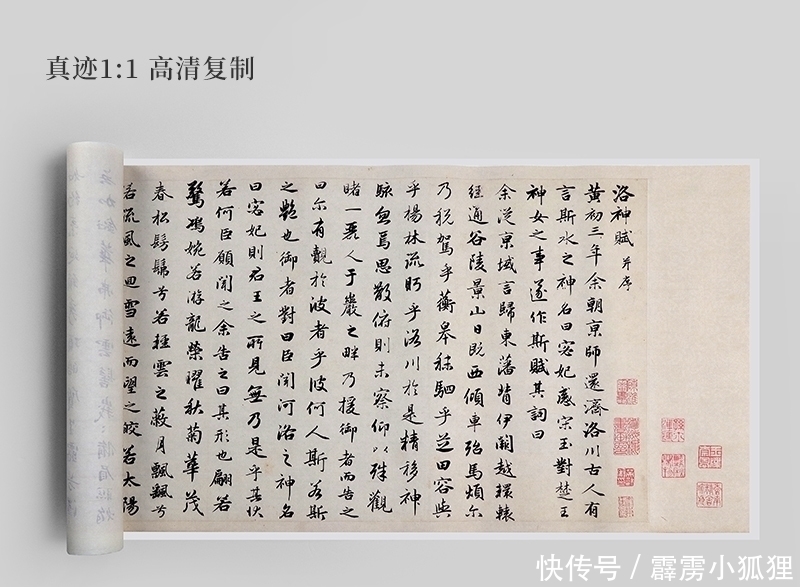 真迹1:1 高清复制
洛神賦 并序
黄初三年余朝京師還濟洛川古人有
言斯水之神名曰宓妃感宋玉對楚王
神女之事遂作斯賦其詞曰
余從京域言歸東藩背伊闕越轘轅
經通谷陵景山日既西傾車殆馬煩尔
乃税駕乎蘅皋秣駟乎芝田容與
乎楊林流眄乎洛川於是精移神
駭忽焉思散俯則未察仰以殊觀
睹一麗人于巖之畔乃援御者而告之
曰尔有覿於彼者乎彼何人斯若斯
之豔也御者對曰臣聞河洛之神名
曰宓妃則君王之所見無乃是乎其状
若何臣願聞之余告之曰其形也翩若
驚鴻婉若游龍榮曜秋菊華茂
春松髣髴兮若輕雲之蔽月飄飄兮
若流風之迴雪遠而望之皎若太陽
快传号 / 霹雳小狐狸